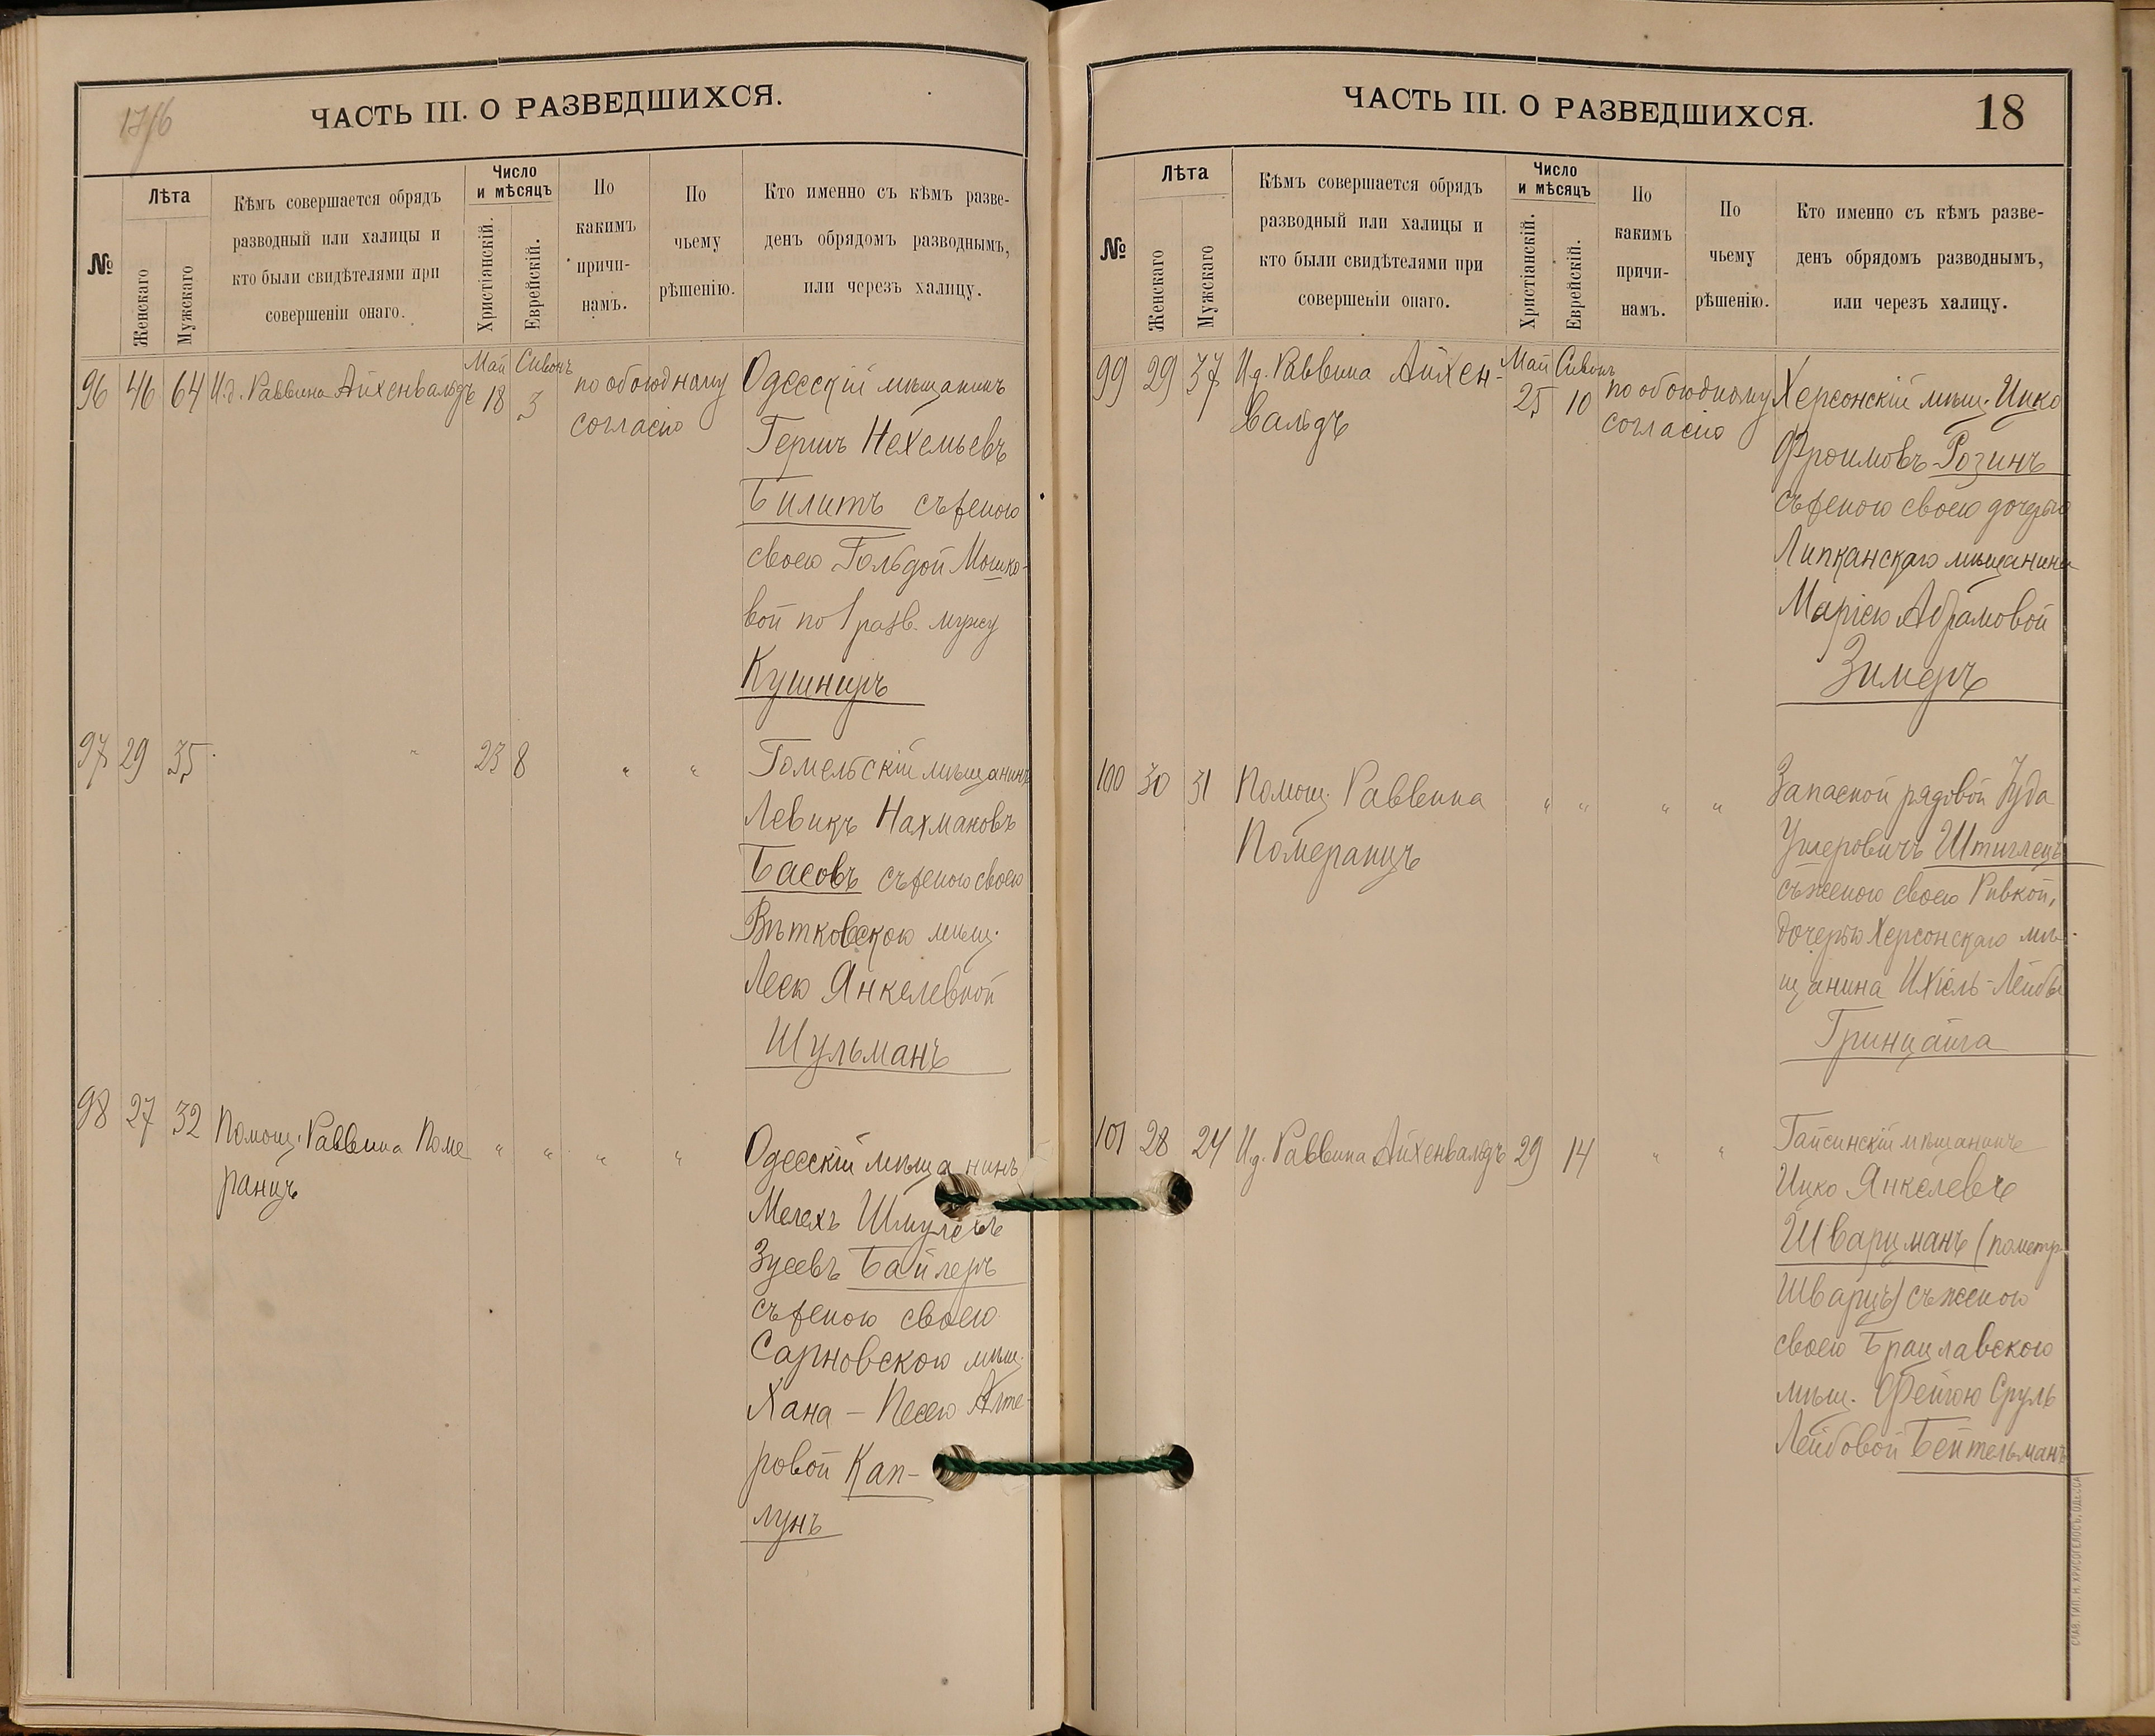 17/6
ЧАСТЬ III. О РАЗВЕДШИХСЯ.
№
Лѣта
Женскаго
Мужскаго
Кѣмъ совершается обрядъ
разводный или халицы и
кто были свидѣтелями при
совершеніи онаго.
Число
и мѣсяцъ
Христіанскій.
Еврейскій.
По
какимъ
причи-
намъ.
По
чьему
рѣшенію.
Кто именно съ кѣмъ разве-
денъ обрядомъ разводнымъ,
или черезъ халицу.
Май Сивонъ
96 46 64 И.д. Раввина Айхенвальдъ 18 3 по обоюдному
согласію
Одесскій мѣщанинъ
Гершъ Нехемьевъ
Билитъ съ женою
своею Гольдой Мошко-
вой по 1 разв. мужу
Кушниръ
97 29 35 " 23 8 " "
Гомельскій мѣщанинъ
Левикъ Нахмановъ
Басовъ съ женою своею
Вѣтковскою мѣщ.
Леею Янкелевной
Шульманъ
98 27 32 Помощ. Раввина Поме
ранцъ
" " " "
Одесскій мѣщанинъ
Мелехъ Шмулевъ
Зусевъ Байлеръ
съ женою своею
Сарновскою мѣщ.
Хана - Песею Алте-
ровой Кап-
лунъ
ЧАСТЬ III. О РАЗВЕДШИХСЯ.
18
№
Лѣта
Женскаго
Мужскаго
Кѣмъ совершается обрядъ
разводный или халицы и
кто были свидѣтелями при
совершеніи онаго.
Число
и мѣсяцъ
Христіанскій.
Еврейскій.
По
какимъ
причи-
намъ.
По
чьему
рѣшенію.
Кто именно съ кѣмъ разве-
денъ обрядомъ разводнымъ,
или черезъ халицу.
Май Сивонъ
99 29 37 И.д. Раввина Айхен-
вальдъ
25 10 по обоюдному
согласію
Херсонскій мѣщ. Ицко
Фроимовъ Розинъ
съ женою своею дочерью
Липканскаго мѣщанина
Маріею Абрамовой
Зимеръ
100 30 31 Помощ. Раввина
Померанцъ
" " " "
Запасной рядовой Іуда
Ушеровичъ Штиглецъ
съ женою своею Ривкой,
дочерью Херсонскаго мѣ-
щанина Ихіель-Лейбы
Гринцайга
101 28 24 И.д. Раввина Айхенвальдъ 29 14 " "
Гайсинскій мѣщанинъ
Ицко Янкелевъ
Шварцманъ (по метр.
Шварцъ) съ женою
своею Брацлавскою
мѣщ. Фейгою Сруль
Лейбовой Бейтельманъ
СЛАВ. ТИП. Н. ХРИСОГЕЛОСЪ, ОДЕССА